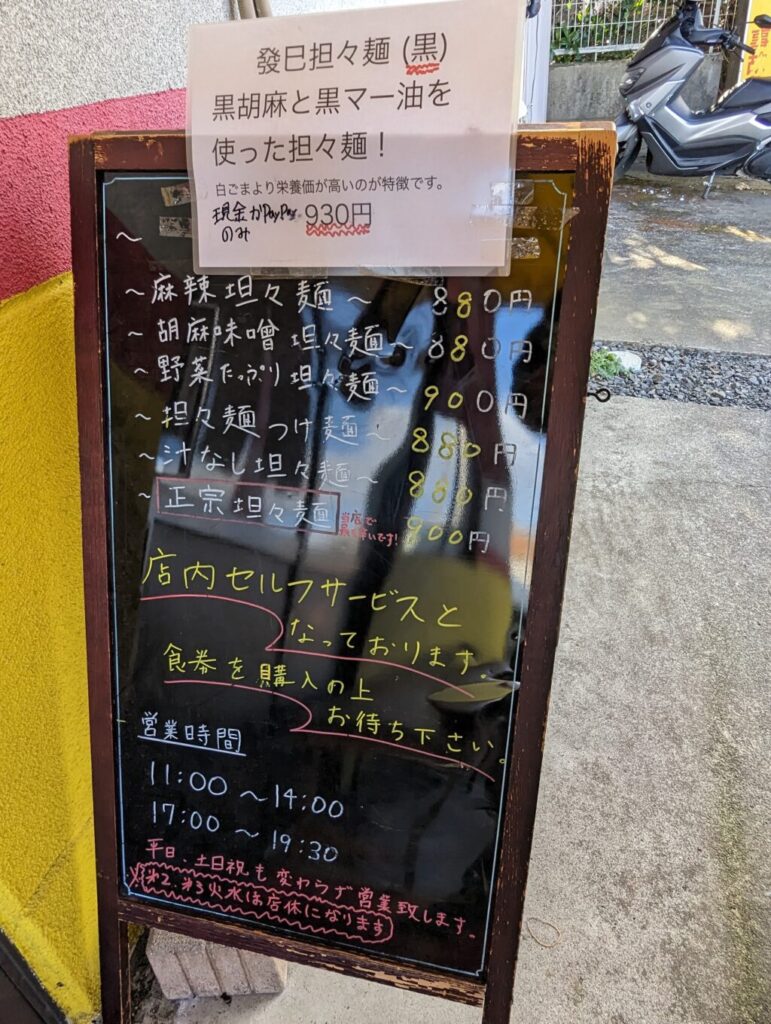 發巳担々麺 (黒)
黒胡麻と黒マー油を
使った担々麺！
白ごまより栄養価が高いのが特徴です。
現金かPayPay 930円
のみ
～
～麻辣坦々麺～ 880円
～胡麻味噌坦々麺～ 880円
～野菜たっぷり坦々麺～ 900円
～担々麺つけ麺～ 880円
～汁なし坦々麺～ 880円
～正宗坦々麺 900円
当店で
辛いです!
店内セルフサービスと
なっております。
食券を購入の上
お待ち下さい。
営業時間
11:00～14:00
17:00～19:30
平日、土日祝も変わらず営業致します。
※第2、第3火水は店休になります